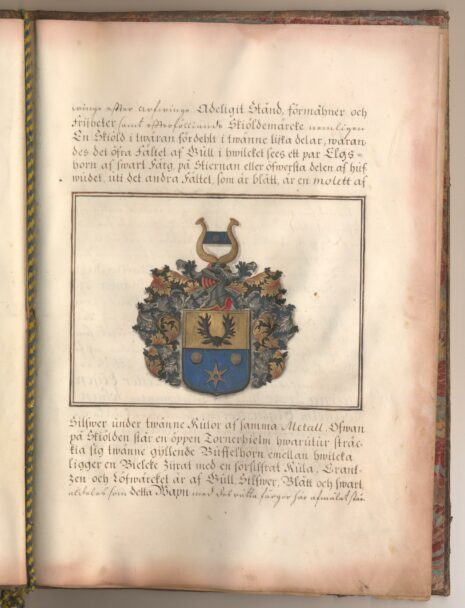 Arfwinge efter Arfwinge Adeligit Stånd, förmåhner och
Frijheter samt efterföliande Skiöldemärcke nemligen
En Skiöld i twären fördehlt i twänne lijka delar, waran-
des det öfra Fältet af Gull i hwilcket sees ett par Elgs=
horn af swart Färg, på Stiernan eller öfwersta delen af huf-
wudet, uti det andra Fältet, som är blått, är en molett af
Silfwer under twänne Kulor af samma Metall. Ofwan
på Skiölden står en öppen Tornerhielm hwarutur sträc-
kia sig twänne gyllende Buffelhorn emellan hwilcka
ligger en Bielcke Zirat med en förSilfrat Kula. Crant-
zen och Löfwärcket är af Gull, Silfwer, Blått och Swart
aldeles som detta Wapn med dess rätta färgor här afmålat står.